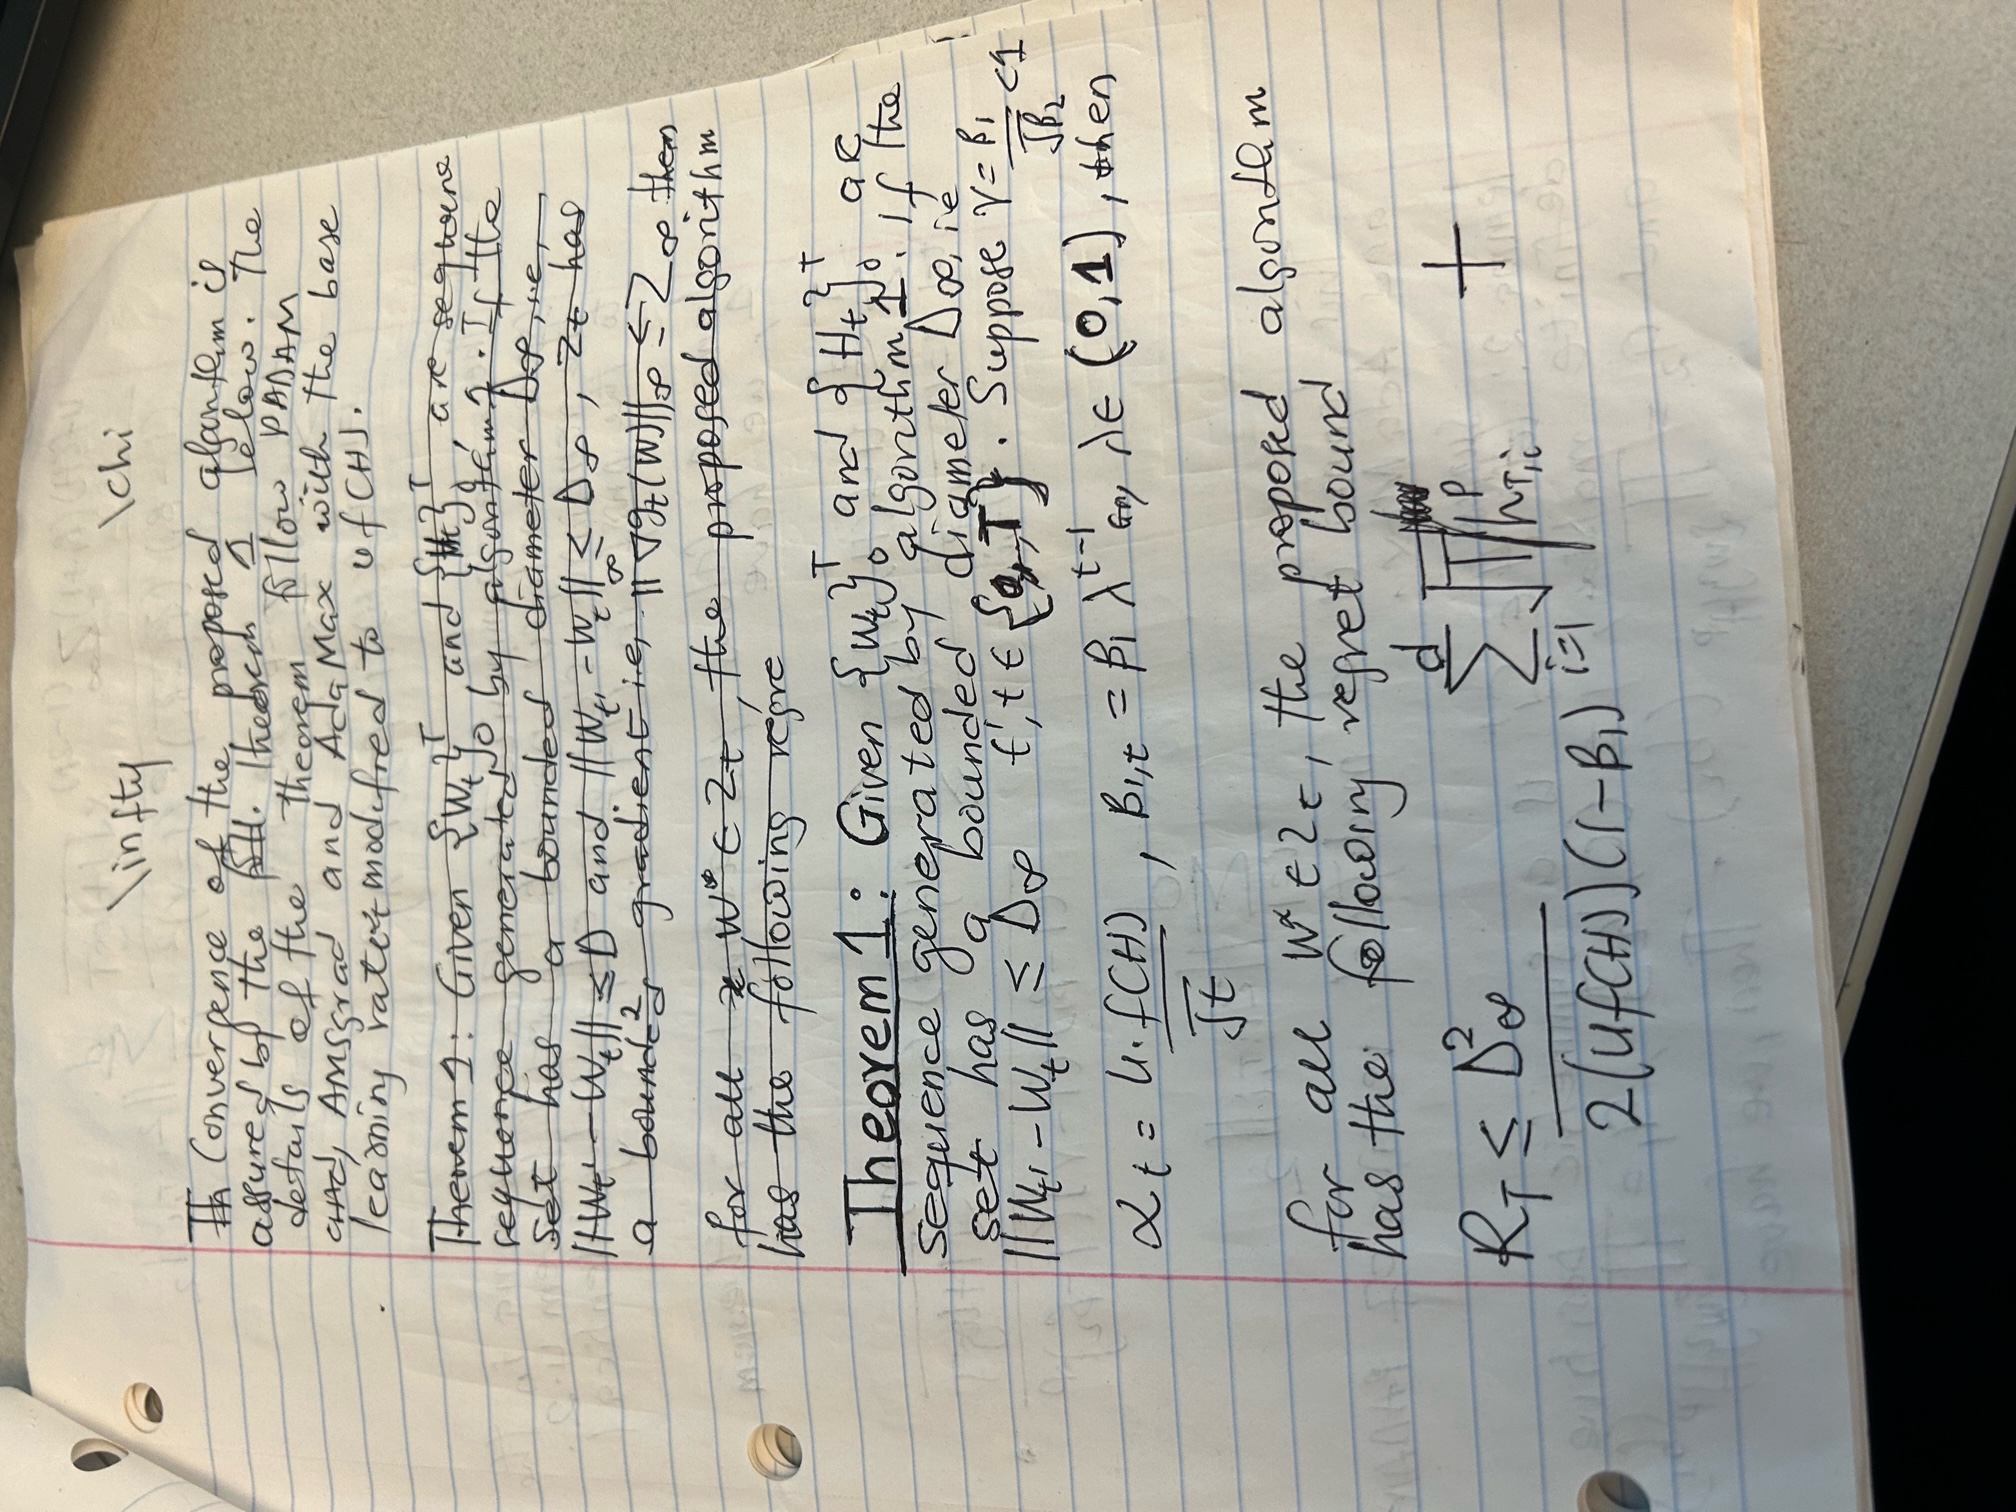 \infty \chi
Th Convergence of the proposed algorithm is
assured by the Theorem 1 below. The
details of the Theorem follow PADAM
and, AMSgrad and AdaMax with the base
learning rate modified to uf(H).
Theorem 1: Given {W_t}_0^T and {H_t}_0^T, are sequene
sequence generated by algorithm 1. If the
set has a bounded diameter D_∞, ie,
||W_t' - W_t||_2 ≤ D and ||W_t' - W_t||_∞ ≤ D_∞, Z_t has
a bounded gradient i.e, ||∇g_t(W)||_∞ ≤ Z_∞ then
for all x W^* ∈ Z_t, the proposed algorithm
has the following regre
Theorem 1: Given {W_t}_0^T and {H_t}_0^T are
sequence generated by algorithm 1. If the
set has a bounded diameter D_∞, ie
||W_t' - W_t|| ≤ D_∞ t', t ∈ {0,,T}. Suppose γ = β_1/√β_2 < 1
α_t = u.f(H)/√t, β_1,t = β_1 λ^{t-1}, λ ∈ (0,1), then
for all W^* ∈ Z_t, the proposed algorithm
has the following regret bound
R_T ≤ D_∞^2 / 2(uf(H))(1-β_1) Σ_{i=1}^d √T h_{T,i}^p +